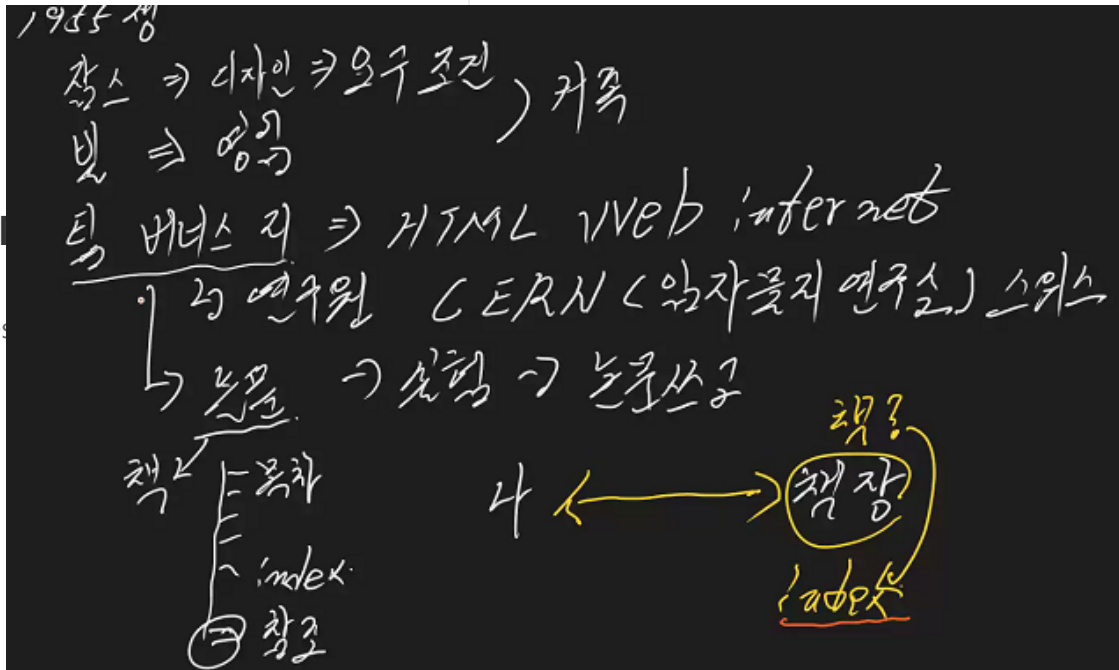 1955생
잡스 ⇒ 디자인 ⇒ 요구조건 ) 커쪽
빌 ⇒ 영업
팀 버너스 리 ⇒ HTML Web internet
↳ 연구원 CERN (입자물리 연구실) 스위스
→ 논문 → 실험 → 논문쓰고
책 목차
index
⇒ 참조
나 ↔ 책장
책?
index